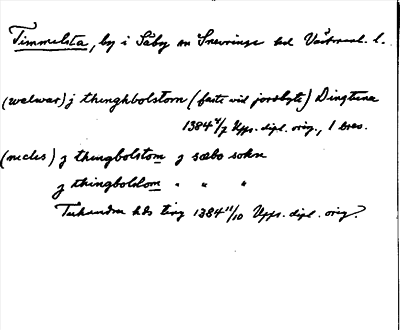 Timmelsta, by i Säby sn Snevringe hd Västmanl. l.
(welwar) j thinghbolstom (faste vid jordbyte) Dingtuna
1384 4/7 Upps. dipl. orig., 1 öres.
(medls) j thingbolstom j sæbo sokn
j thingbolslom " " "
Tuhundra hds ting 1384 11/10 Upps. dipl. orig.